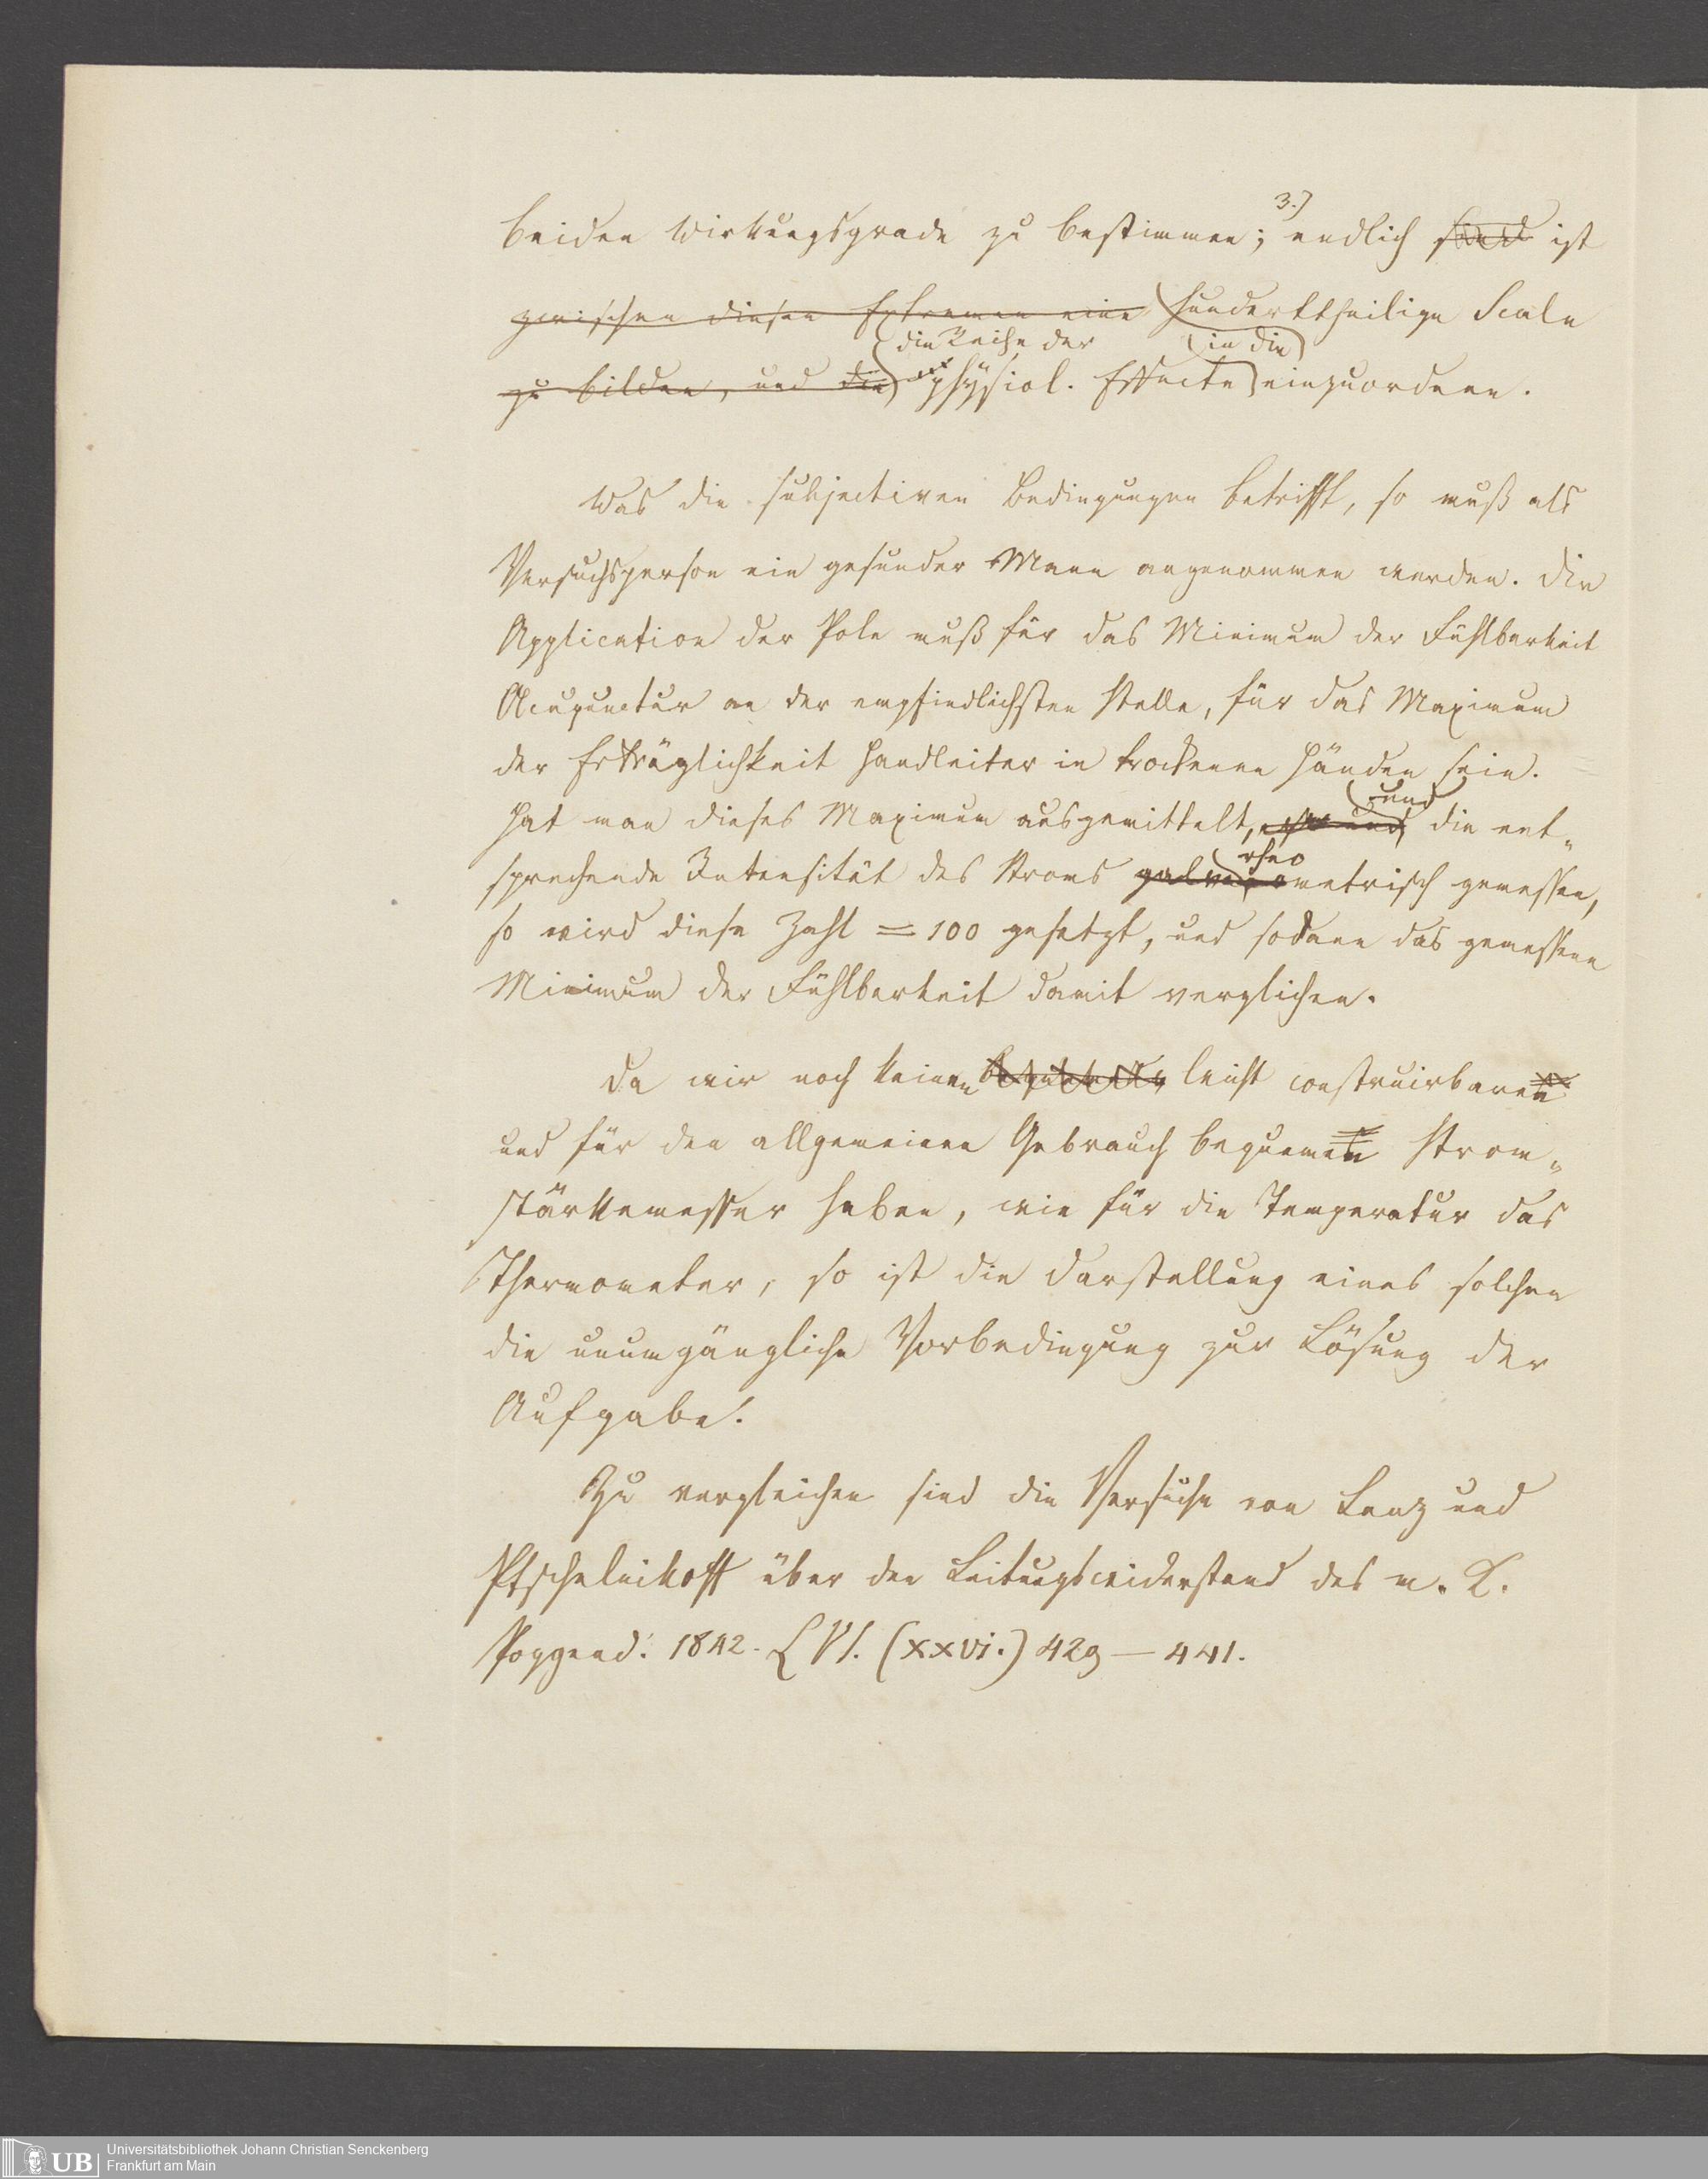 3.)
beiden Wirkungsgrade zu bestimmen; endlich sind ist
zwischen diesen Extremen eine hunderttheilige Scale
die Reihe der in die
zu bilden, und die physiol. Effecte einzuordnen.
Was die subjectiven Bedingungen betrifft, so muß als
Versuchsperson ein gesunder Mann angenommen werden. Die
Application der Pole muß für das Minimum der Fühlbarkeit
Acupunctur an der empfindlichsten Stelle, für das Maximum
der Erträglichkeit Handleiter in trockenen Händen sein.
und
Hat man dieses Maximum ausgemittelt, und die ent-
rheo
sprechende Intensität des Stroms galvanometrisch gemessen,
so wird diese Zahl = 100 gesetzt, und sodann das gemessene
Minimum der Fühlbarkeit damit verglichen.
Da wir noch keinen leicht construirbaren
und für den allgemeinen Gebrauch bequemen Strom-
stärkemesser haben, wie für die Temperatur das
Thermometer, so ist die Darstellung eines solchen
die unumgängliche Vorbedingung zur Lösung der
Aufgabe.
Zu vergleichen sind die Versuche von Lenz und
Ptschelnikoff über den Leitungswiderstand des m. K.
Poggend. 1842. LVI. (XXVI.) 429 — 441.
UB Universitätsbibliothek Johann Christian Senckenberg
Frankfurt am Main